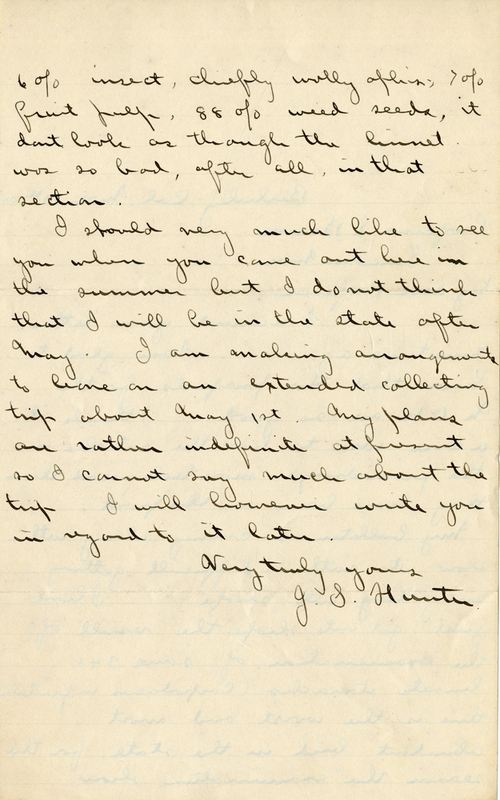 6 o/o insect, chiefly wolly aphis; 7 o/o
fruit pulp, 88 o/o weed seeds, it
dont look as though the linnet
was so bad, after all, in that
section.
I should very much like to see
you when you come out here in
the summer but I do not think
that I will be in the state after
May I am making arrangements
to leave on an extended collecting
trip about May 1st. My plans
are rather indefinite at present
so I cannot say much about the
trip I will however write you
in regard to it later.
Very truly yours
J. S. Hunter.